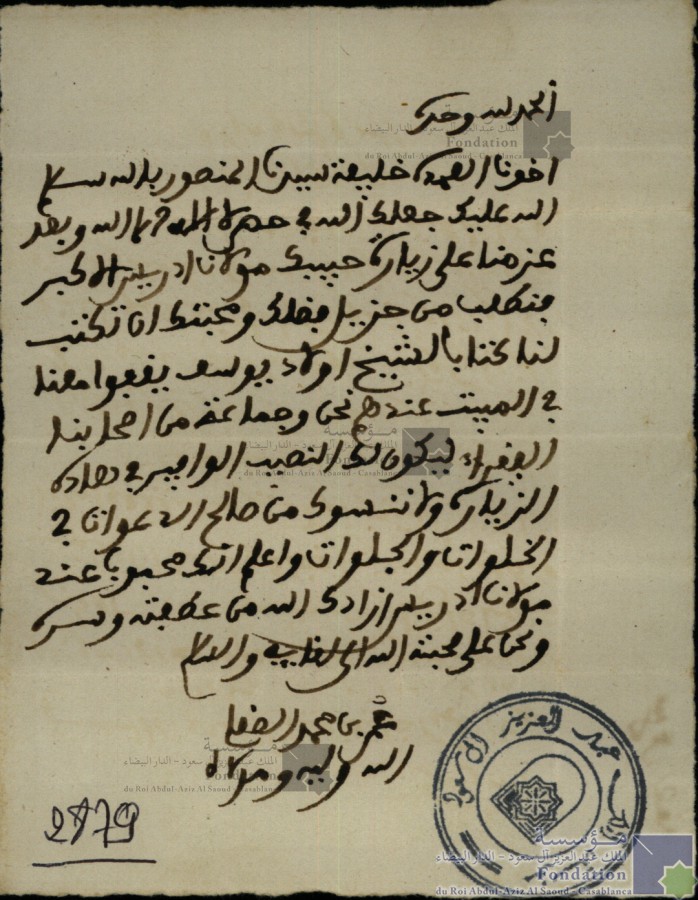 الحمد لله وحده
اخونا العمدة خليفة سيدنا المنصور بالله سلام
الله عليك جعلك الله في حمى الله وبعد
عزمنا على زيارة حبيبك مولانا ادريس الاكبر
فنطلب من جزيل فضلك ومحبتك ان تكتب
لنا كتابا لشيخ اولاد يوسف يقفوا معنا
في المبيت عندهم نحن وجماعة من اصحابنا
الفقراء ليكون لك النصيب الوافر في هاذه
الزيارة ولا ننسوك من صالح الدعوات في
الخلوات والجلوات واعلم انك محبوب عند
مولانا ادريس زادك الله من عطفته وسره
ونحن على محبة الله والسلام
عمر بن محمد
الله وليه ومولاه
2879
عبد العزيز ال سعود
مؤسسة
الملك عبد العزيز آل سعود - الدار البيضاء
Fondation
du Roi Abdul-Aziz Al Saoud - Casablanca